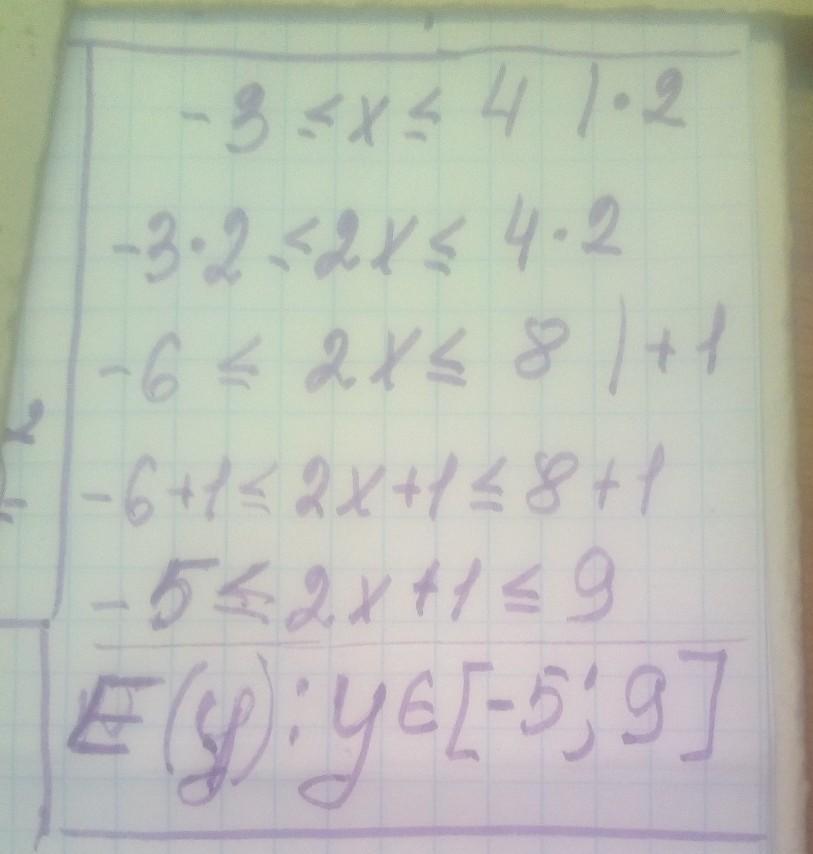 -3 ≤ x ≤ 4 | · 2
-3·2 ≤ 2x ≤ 4·2
-6 ≤ 2x ≤ 8 | + 1
-6+1 ≤ 2x+1 ≤ 8+1
-5 ≤ 2x+1 ≤ 9
E(y): y ∈ [-5; 9]
2